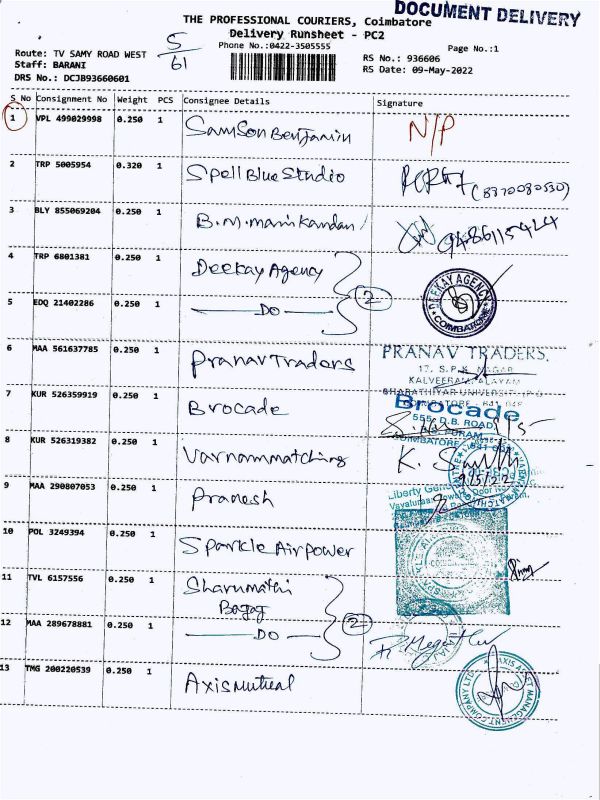 DOCUMENT DELIVERY
THE PROFESSIONAL COURIERS, Coimbatore
Delivery Runsheet - PC2
Phone No.:0422-3505555
Page No.:1
Route: TV SAMY ROAD WEST
5/61
Staff: BARANI
RS No.: 936606
DRS No.: DCJB93660601
RS Date: 09-May-2022
S No Consignment No Weight PCS Consignee Details Signature
1 VPL 499029998 0.250 1 Samson Benjamin N/P
2 TRP 5005954 0.320 1 Spell Blue Studio (8370080530)
3 BLY 855069204 0.250 1 B.M. manikandan
4 TRP 6801381 0.250 1 Deekay Agency DEEKAY AGENCY COIMBATORE
5 EDQ 21402286 0.250 1 DO 2
6 MAA 561637785 0.250 1 Pranav Traders PRANAV TRADERS,
17, S.P.K. NAGAR
KALVEERAMPALAYAM
BHARATHIYAR UNIVERSITY (P.O)
COIMBATORE - 641 046
7 KUR 526359919 0.250 1 Brocade Brocade
555, D.B. ROAD
PURAM
COIMBATORE - 641 002
8 KUR 526319382 0.250 1 Varnammatching K.
9/5/22
9 MAA 290807053 0.250 1 Pranesh Liberty
10 POL 3249394 0.250 1 Sparkle Airpower
11 TVL 6157556 0.250 1 Sharumathi
Bagag
12 MAA 289678881 0.250 1 DO 2
13 TMG 200220539 0.250 1 Axis Mutual AXIS ASSET MANAGEMENT COMPANY LTD